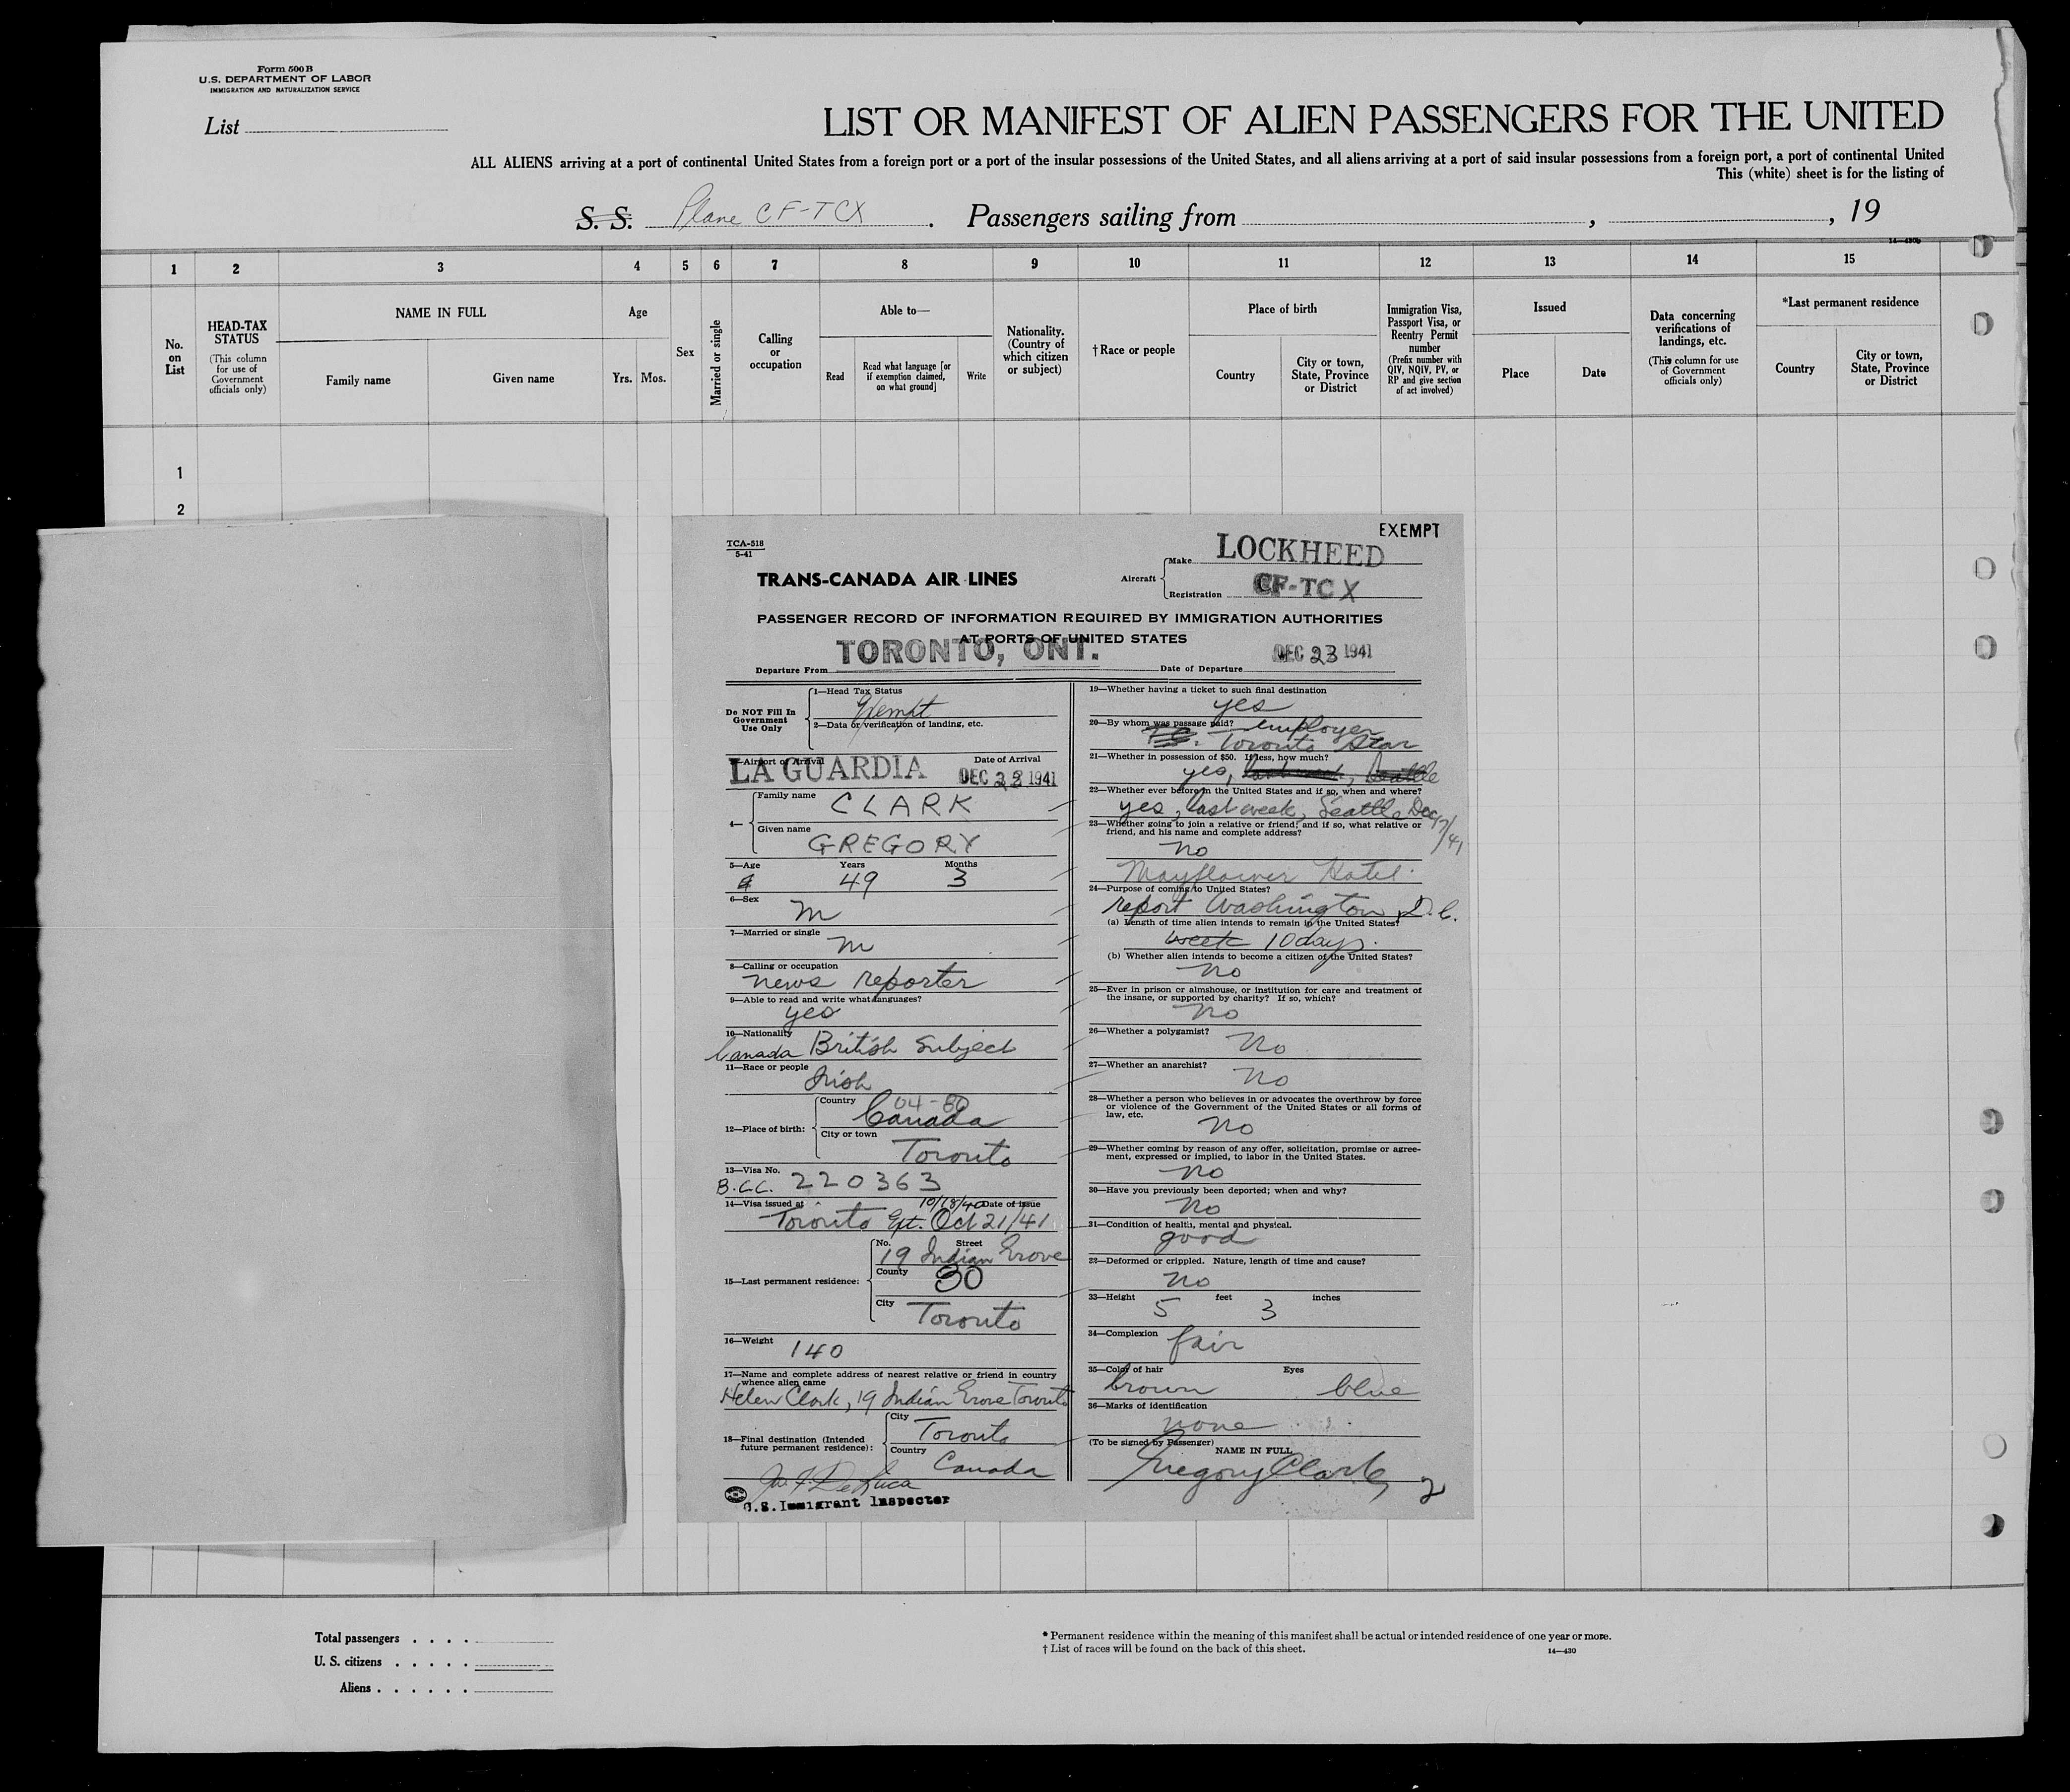 Form 500 B
U.S. DEPARTMENT OF LABOR
IMMIGRATION AND NATURALIZATION SERVICE
List
LIST OR MANIFEST OF ALIEN PASSENGERS FOR THE UNITED
ALL ALIENS arriving at a port of continental United States from a foreign port or a port of the insular possessions of the United States, and all aliens arriving at a port of said insular possessions from a foreign port, a port of continental United
This (white) sheet is for the listing of
S. S. Plane CF-TCX. Passengers sailing from , , 19
14—430b
1 2 3 4 5 6 7 8 9 10 11 12 13 14 15
No. on List
HEAD-TAX STATUS (This column for use of Government officials only)
NAME IN FULL
Family name
Given name
Age
Yrs. Mos.
Sex
Married or single
Calling or occupation
Able to—
Read
Read what language [or if exemption claimed, on what ground]
Write
Nationality. (Country of which citizen or subject)
†Race or people
Place of birth
Country
City or town, State, Province or District
Immigration Visa, Passport Visa, or Reentry Permit number (Prefix number with QIV, NQIV, PV, or RP and give section of act involved)
Issued
Place
Date
Data concerning verifications of landings, etc. (This column for use of Government officials only)
*Last permanent residence
Country
City or town, State, Province or District
1
2
EXEMPT
TCA-518
5-41
TRANS-CANADA AIR LINES
Aircraft
Make LOCKHEED
Registration CF-TCX
PASSENGER RECORD OF INFORMATION REQUIRED BY IMMIGRATION AUTHORITIES
AT PORTS OF UNITED STATES
Departure From TORONTO, ONT. Date of Departure DEC 23 1941
Do NOT Fill In Government Use Only
1—Head Tax Status
Exempt
2—Data or verification of landing, etc.
3—Airport of Arrival Date of Arrival
LA GUARDIA DEC 23 1941
4—
Family name CLARK
Given name GREGORY
5—Age Years Months
49 3
6—Sex
M
7—Married or single
M
8—Calling or occupation
news reporter
9—Able to read and write what languages?
yes
10—Nationality
Canada British Subject
11—Race or people
Irish
12—Place of birth:
Country 04-60
Canada
City or town
Toronto
13—Visa No.
B.C.C. 220363
14—Visa issued at 10/18/40 Date of issue
Toronto Ext. Oct 21/41
15—Last permanent residence:
No. Street
19 Indian Grove
County 30
City Toronto
16—Weight
140
17—Name and complete address of nearest relative or friend in country whence alien came
Helen Clark, 19 Indian Grove Toronto
18—Final destination (Intended future permanent residence):
City
Toronto
Country
Canada
U.S. Immigrant Inspector
19—Whether having a ticket to such final destination
yes
20—By whom was passage paid? employer
Toronto Star
21—Whether in possession of $50. If less, how much?
yes, last week, Seattle
22—Whether ever before in the United States and if so, when and where?
yes, last week, Seattle Dec 17/41
23—Whether going to join a relative or friend; and if so, what relative or friend, and his name and complete address?
no
Mayflower Hotel.
24—Purpose of coming to United States?
report Washington, D.C.
(a) Length of time alien intends to remain in the United States?
week 10 days.
(b) Whether alien intends to become a citizen of the United States?
no
25—Ever in prison or almshouse, or institution for care and treatment of the insane, or supported by charity? If so, which?
no
26—Whether a polygamist?
no
27—Whether an anarchist?
no
28—Whether a person who believes in or advocates the overthrow by force or violence of the Government of the United States or all forms of law, etc.
no
29—Whether coming by reason of any offer, solicitation, promise or agreement, expressed or implied, to labor in the United States.
no
30—Have you previously been deported; when and why?
no
31—Condition of health, mental and physical.
good
22—Deformed or crippled. Nature, length of time and cause?
no
33—Height feet inches
5 3
34—Complexion fair
35—Color of hair Eyes
brown blue
36—Marks of identification
none
(To be signed by Passenger)
NAME IN FULL
Gregory Clark 2
Total passengers . . . .
U. S. citizens . . . . .
Aliens . . . . . .
* Permanent residence within the meaning of this manifest shall be actual or intended residence of one year or more.
† List of races will be found on the back of this sheet. 14—430